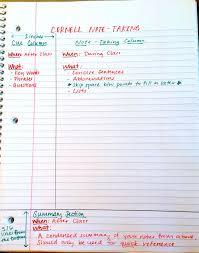 CORNELL NOTE-TAKING
2 inches
Cue Column
Note-Taking Column
When: After Class
When: During Class
What:
What:
- Key Words
- Concise Sentences
- Phrases
- Abbreviations
- Questions
- Skip space btw points to fill in later
- Lists
Summary Section
When: After Class
What:
5/6 lines from the bottom
A condensed summary of your notes from above.
Should only be used for quick reference